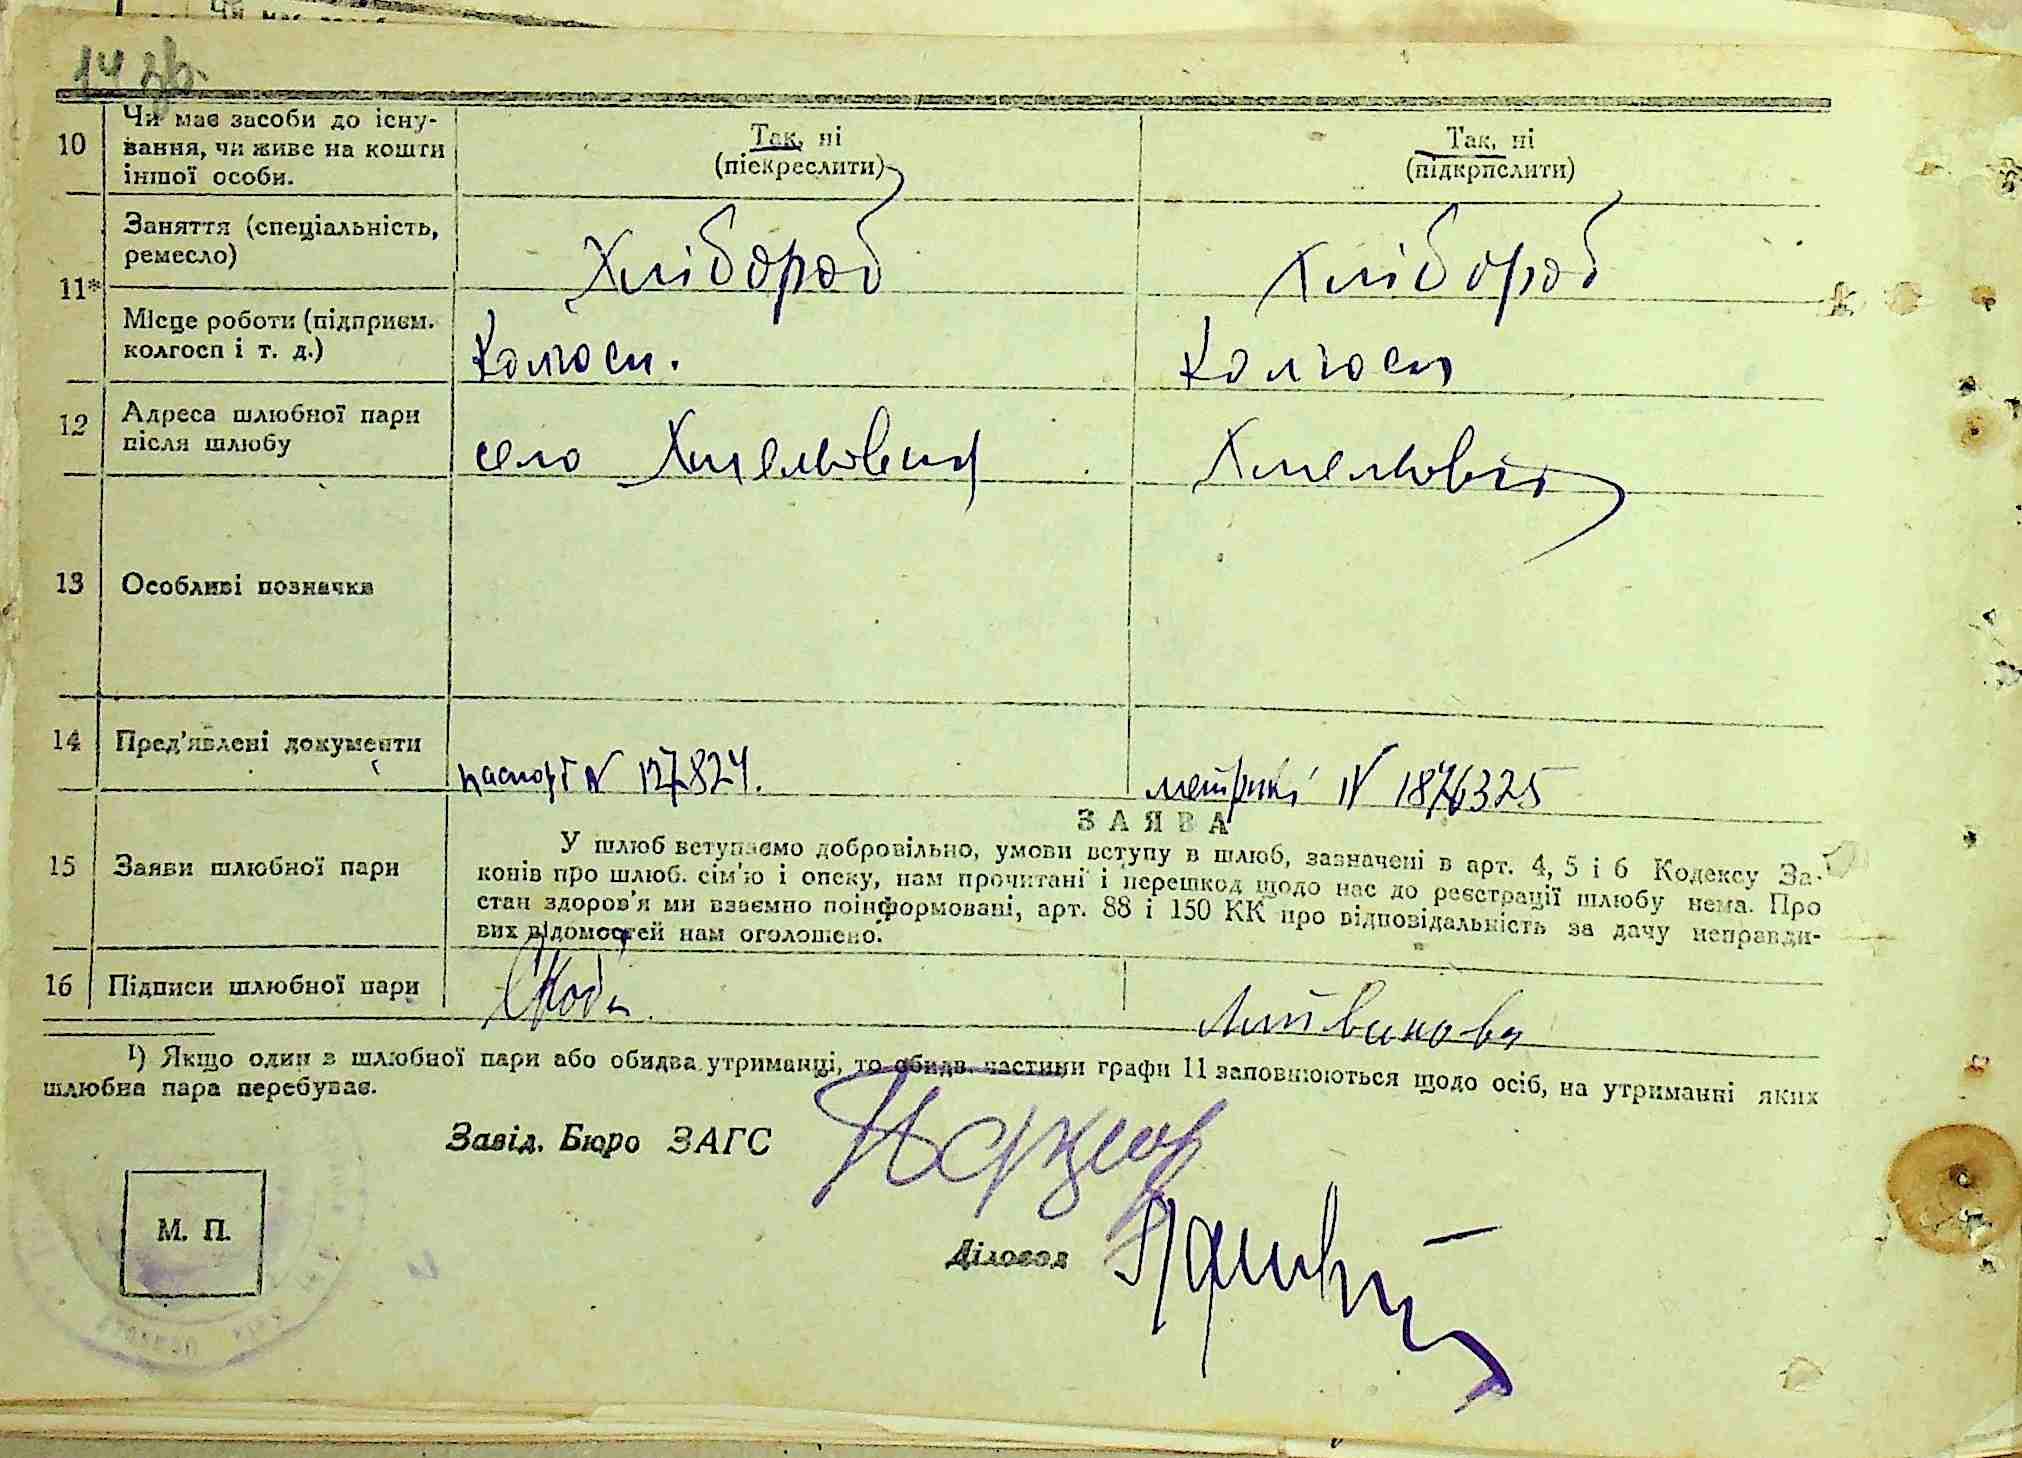 14 зв.
10
Чи має засоби до існу-
вання, чи живе на кошти
іншої особи.
Так, ні
(піекреслити)
Так, ні
(підкрпслити)
11*
Заняття (спеціальність,
ремесло)
Хлібороб
Хлібороб
Місце роботи (підприєм.
колгосп і т. д.)
Колгосп.
Колгосп
12
Адреса шлюбної пари
після шлюбу
село
13
Особливі позначка
14
Пред'явлені документи
паспорт N 127824.
метрикі N 1876325
15
Заяви шлюбної пари
ЗАЯВА
У шлюб вступаємо добровільно, умови вступу в шлюб, зазначені в арт. 4, 5 і 6 Кодексу За-
конів про шлюб. сім'ю і опеку, нам прочитані і перешкод щодо нас до реєстрації шлюбу нема. Про
стан здоров'я ми взаємно поінформовані, арт. 88 і 150 КК про відповідальність за дачу неправди-
вих відомостей нам оголошено.
16
Підписи шлюбної пари
Литвинова
1) Якщо один з шлюбної пари або обидва утриманці, то обидв. частини графи 11 заповнюються щодо осіб, на утриманні яких
шлюбна пара перебуває.
Завід. Бюро ЗАГС
М. П.
Діловод